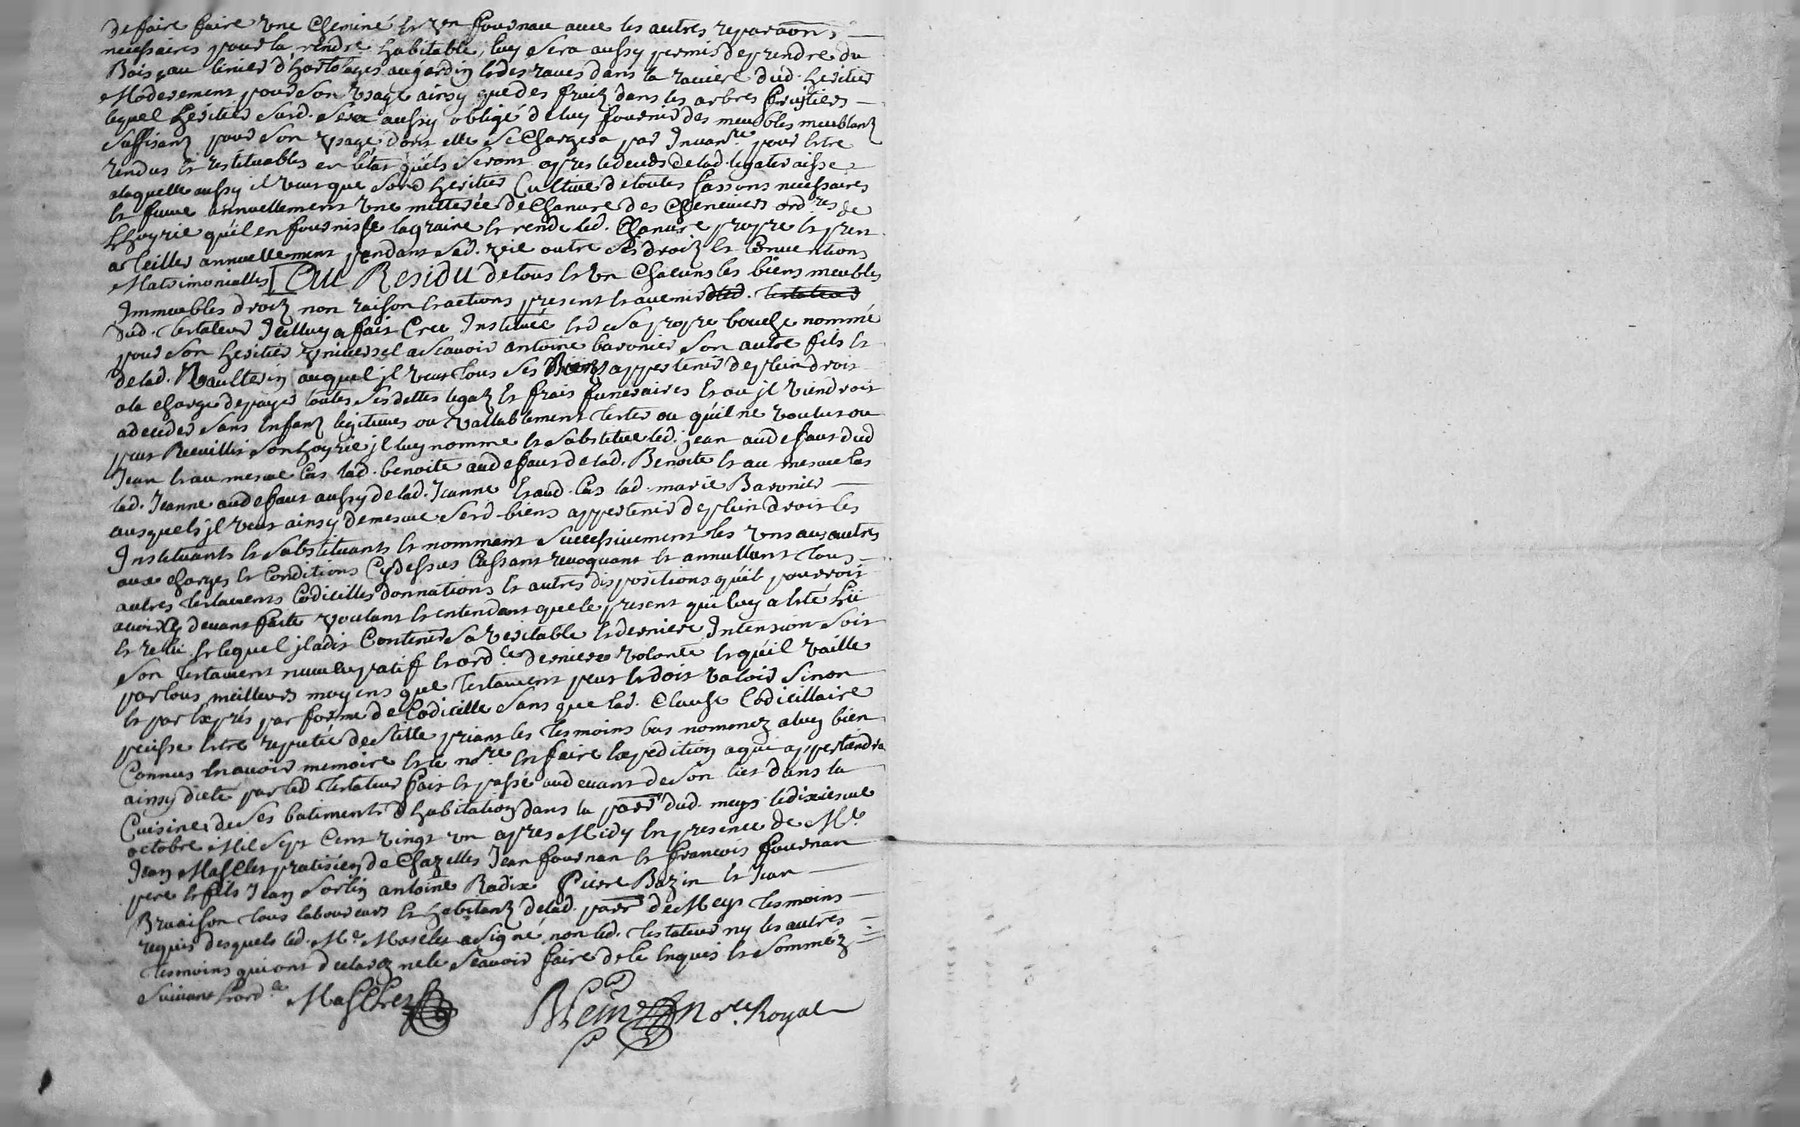 de faire faire une Cheminé et un fourneau avec les autres reparaons
necessaires pour la rendre habitable, luy sera aussy permis de prendre du
Bois, au linier d'hortolages au jardin et des raves dans la raviere dud. heritier
Moderement pour son usage ainsy que des fruitz dans les arbres fruitiers
lequel heritier sard. sera aussy obligé de luy fournir des meubles meublanz
suffisanz pour son usage dont elle se chargera par Invanre pour estre
rendus et restituables en létat quils seront apres le deceds de lad. legataraisse
a laquelle aussy il veut que sond. heritier Cultive de toutes fassons necessaires
et fume annuellement une mitterée de Chanvre des Cheneviers ord.res de
Lhoyrie quil en fournisse la graine et rende led. Chanvre propre et prest
a teiller annuellement pendant sad. vie outre ses droitz et Conventions
Matrimonialles [Au Residu de tous et un Chacuns les biens meubles
Immeubles droitz nom raison et actions present et avenir dud. testateur
dud. testateur Icelluy a fait Cree Institué et de sa propre bouche nommé
pour son heritier universel a scavoir antoine baronier son autre fils et
de lad. Naulterin auquel il veut tous ses Biens appertenir de plein droit
a la charge de payer toutes ses dettes legatz et frais funeraires et ou jl viendroit
a deceder sans Enfanz legitimes ou vallablement tester ou quil ne voulut ou
peut Recuillir son hoyrie jl luy nomme et substitue led. jean au defaut dud
Jean et au mesme Cas lad. benoite au defaut de lad. Benoite et au mesme Cas
lad. Jeanne au defaut aussy de lad. Jeanne et aud. Cas lad. marie Baronier
ausquels jl veut ainsy de mesme serd. biens appertenir de plein droit les
Instituants et substituants et nommant successivement les uns aux autres
aux charges et Conditions Cy dessus Cassant revoquant et annullant tous
autres testaments Codicilles donnations et autres dispositions quil pourroit
avoir Cy devant faite voulant et entendant que le present qui luy a esté Lû
et relû et lequel jl a dit Contenir sa veritable et derniere Intension soit
son testament nuncupatif et ord.re derniere volonté et quil vaille
par tous meilleurs moyens que testament peut et doit valoir sinon
et par Exprés par forme de Codicille sans que lad. Clause Codicillaire
puisse estre reputée de stille priant les tesmoins bas nommez a luy bien
Connus En avoir memoire et le no.re En faire lexpedition a qui appertiendra
ainsy dicté par led. testateur fait et passé au devant de son lict dans la
Cuisine de ses batiments d'habitation dans la parr. dud. meys le dixiesme
octobre Mil sept Cent vingt un apres Midy En presence de M.e
Jean Masclet pratisien de Chazelles Jean fournan et francois fournan
pere et fils Jean Sorlin antoine Radix Pierre Bazin et Jean
Bruaisson tous laboureurs et habitanz de lad. parr. de Meys tesmoins
requis desquels led. M.e Masclet a signé non led. testateur ny les autres
tesmoins qui ont declarez ne le scavoir faire de ce Enquis et sommez
suivant Lord.ce Masclet
No.re Royal